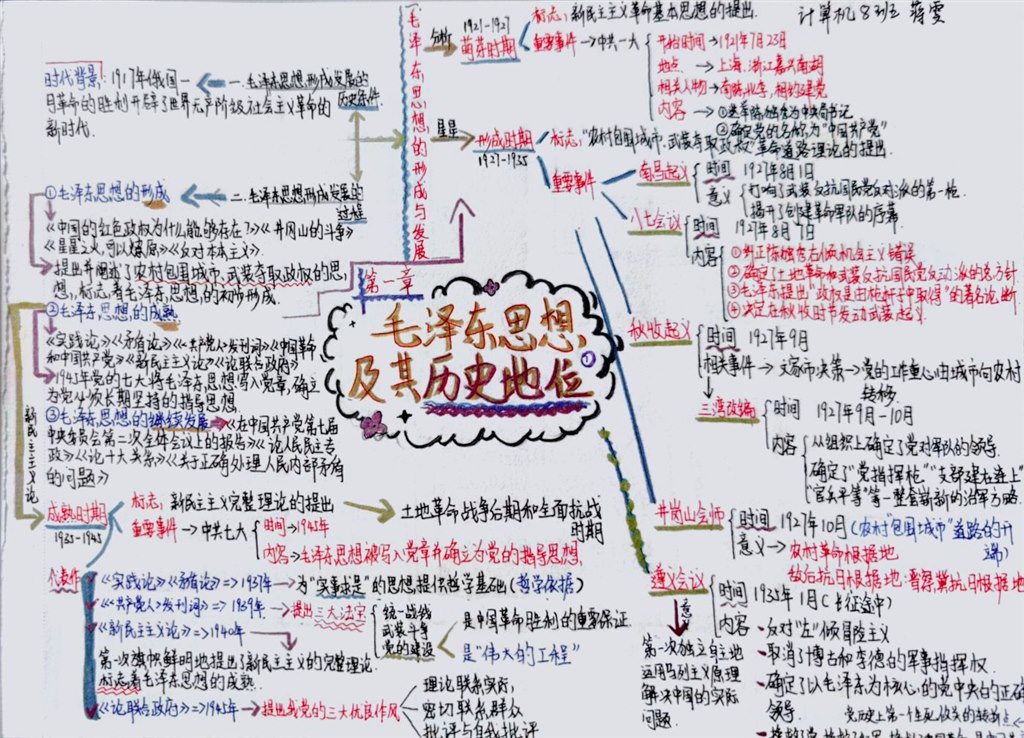 计算机8班 蒋雯
毛泽东思想
及其历史地位①
第一章
毛泽东思想的形成与发展
时代背景：1917年俄国一
月革命的胜利开辟了世界无产阶级社会主义革命的
新时代.
一.毛泽东思想形成发展的
历史条件.
二.毛泽东思想形成发展的
过程
①毛泽东思想的形成
《中国的红色政权为什么能够存在？》《井冈山的斗争》
《星星之火,可以燎原》《反对本本主义》.
提出并阐述了农村包围城市、武装夺取政权的思
想,标志着毛泽东思想的初步形成.
②毛泽东思想的成熟
《实践论》《矛盾论》《<共产党人>发刊词》《中国革命
和中国共产党》《新民主主义论》《论联合政府》
1945年党的七大将毛泽东思想写入党章,确立
为党必须长期坚持的指导思想.
③毛泽东思想的继续发展→《在中国共产党第七届
中央委员会第二次全体会议上的报告》《论人民民主专
政》《论十大关系》《关于正确处理人民内部矛盾
的问题》
新民主主义论
分析
1921-1927
萌芽时期
标志：新民主主义革命基本思想的提出.
重要事件→中共一大
开始时间→1921年7月23日
地点 →上海、浙江嘉兴南湖
相关人物→南陈北李,相约建党
内容 →①选举陈独秀为中央局书记
②确定党的名称为"中国共产党"
星星
形成时期
1927-1935
标志："农村包围城市、武装夺取政权"革命道路理论的提出.
重要事件
南昌起义
时间 1927年8月1日
意义 打响了武装反抗国民党反动派的第一枪.
揭开了创建革命军队的序幕
八七会议
时间：1927年8月7日
内容
①纠正陈独秀右倾机会主义错误
②确定《土地革命和武装反抗国民党反动派的总方针
③毛泽东提出"政权是由枪杆子中取得"的著名论断.
④决定在秋收时节发动武装起义.
秋收起义
时间：1927年9月
相关事件→文家市决策→党的工作重心由城市向农村
转移.
三湾改编
时间 1927年9月-10月
内容
从组织上确立了党对军队的领导.
确定了"党指挥枪""支部建在连上"
"官兵平等"等一整套崭新的治军方略.
井岗山会师
时间 1927年10月(农村"包围城市"道路的开
端)
意义→农村革命根据地
敌后抗日根据地：晋察冀抗日根据地
遵义会议
时间：1935年1月(长征途中)
内容 -反对"左"倾冒险主义
-取消了博古和李德的军事指挥权.
-确定了以毛泽东为核心的党中央的正确
领导.
意义
第一次独立自主地
运用马列主义原理
解决中国的实际
问题.
成熟时期
1935-1945
标志：新民主主义完整理论的提出→土地革命战争后期和全面抗战
时期
重要事件→中共七大
时间→1945年
内容→毛泽东思想被写入党章并确立为党的指导思想.
代表作
《实践论》《矛盾论》=>1937年→为"实事求是"的思想提供哲学基础(哲学依据)
《<共产党人>发刊词》=>1939年→提出三大法宝
统一战线
武装斗争
党的建设
是中国革命胜利的重要保证
是"伟大的工程"
《新民主主义论》=>1940年
第一次旗帜鲜明地提出了新民主主义的完整理论
标志着毛泽东思想的成熟.
《论联合政府》=>1945年→提出我党的三大优良作风
理论联系实际,
密切联系群众
批评与自我批评